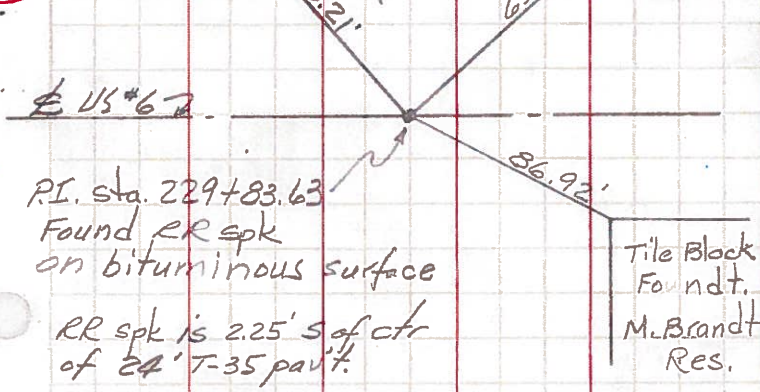 ℄ US #6
P.I. sta. 229+83.63
Found RR spk
on bituminous surface
RR spk is 2.25' S of ctr
of 24' T-35 pav't.
86.92'
Tile Block
Foundt.
M. Brandt
Res.